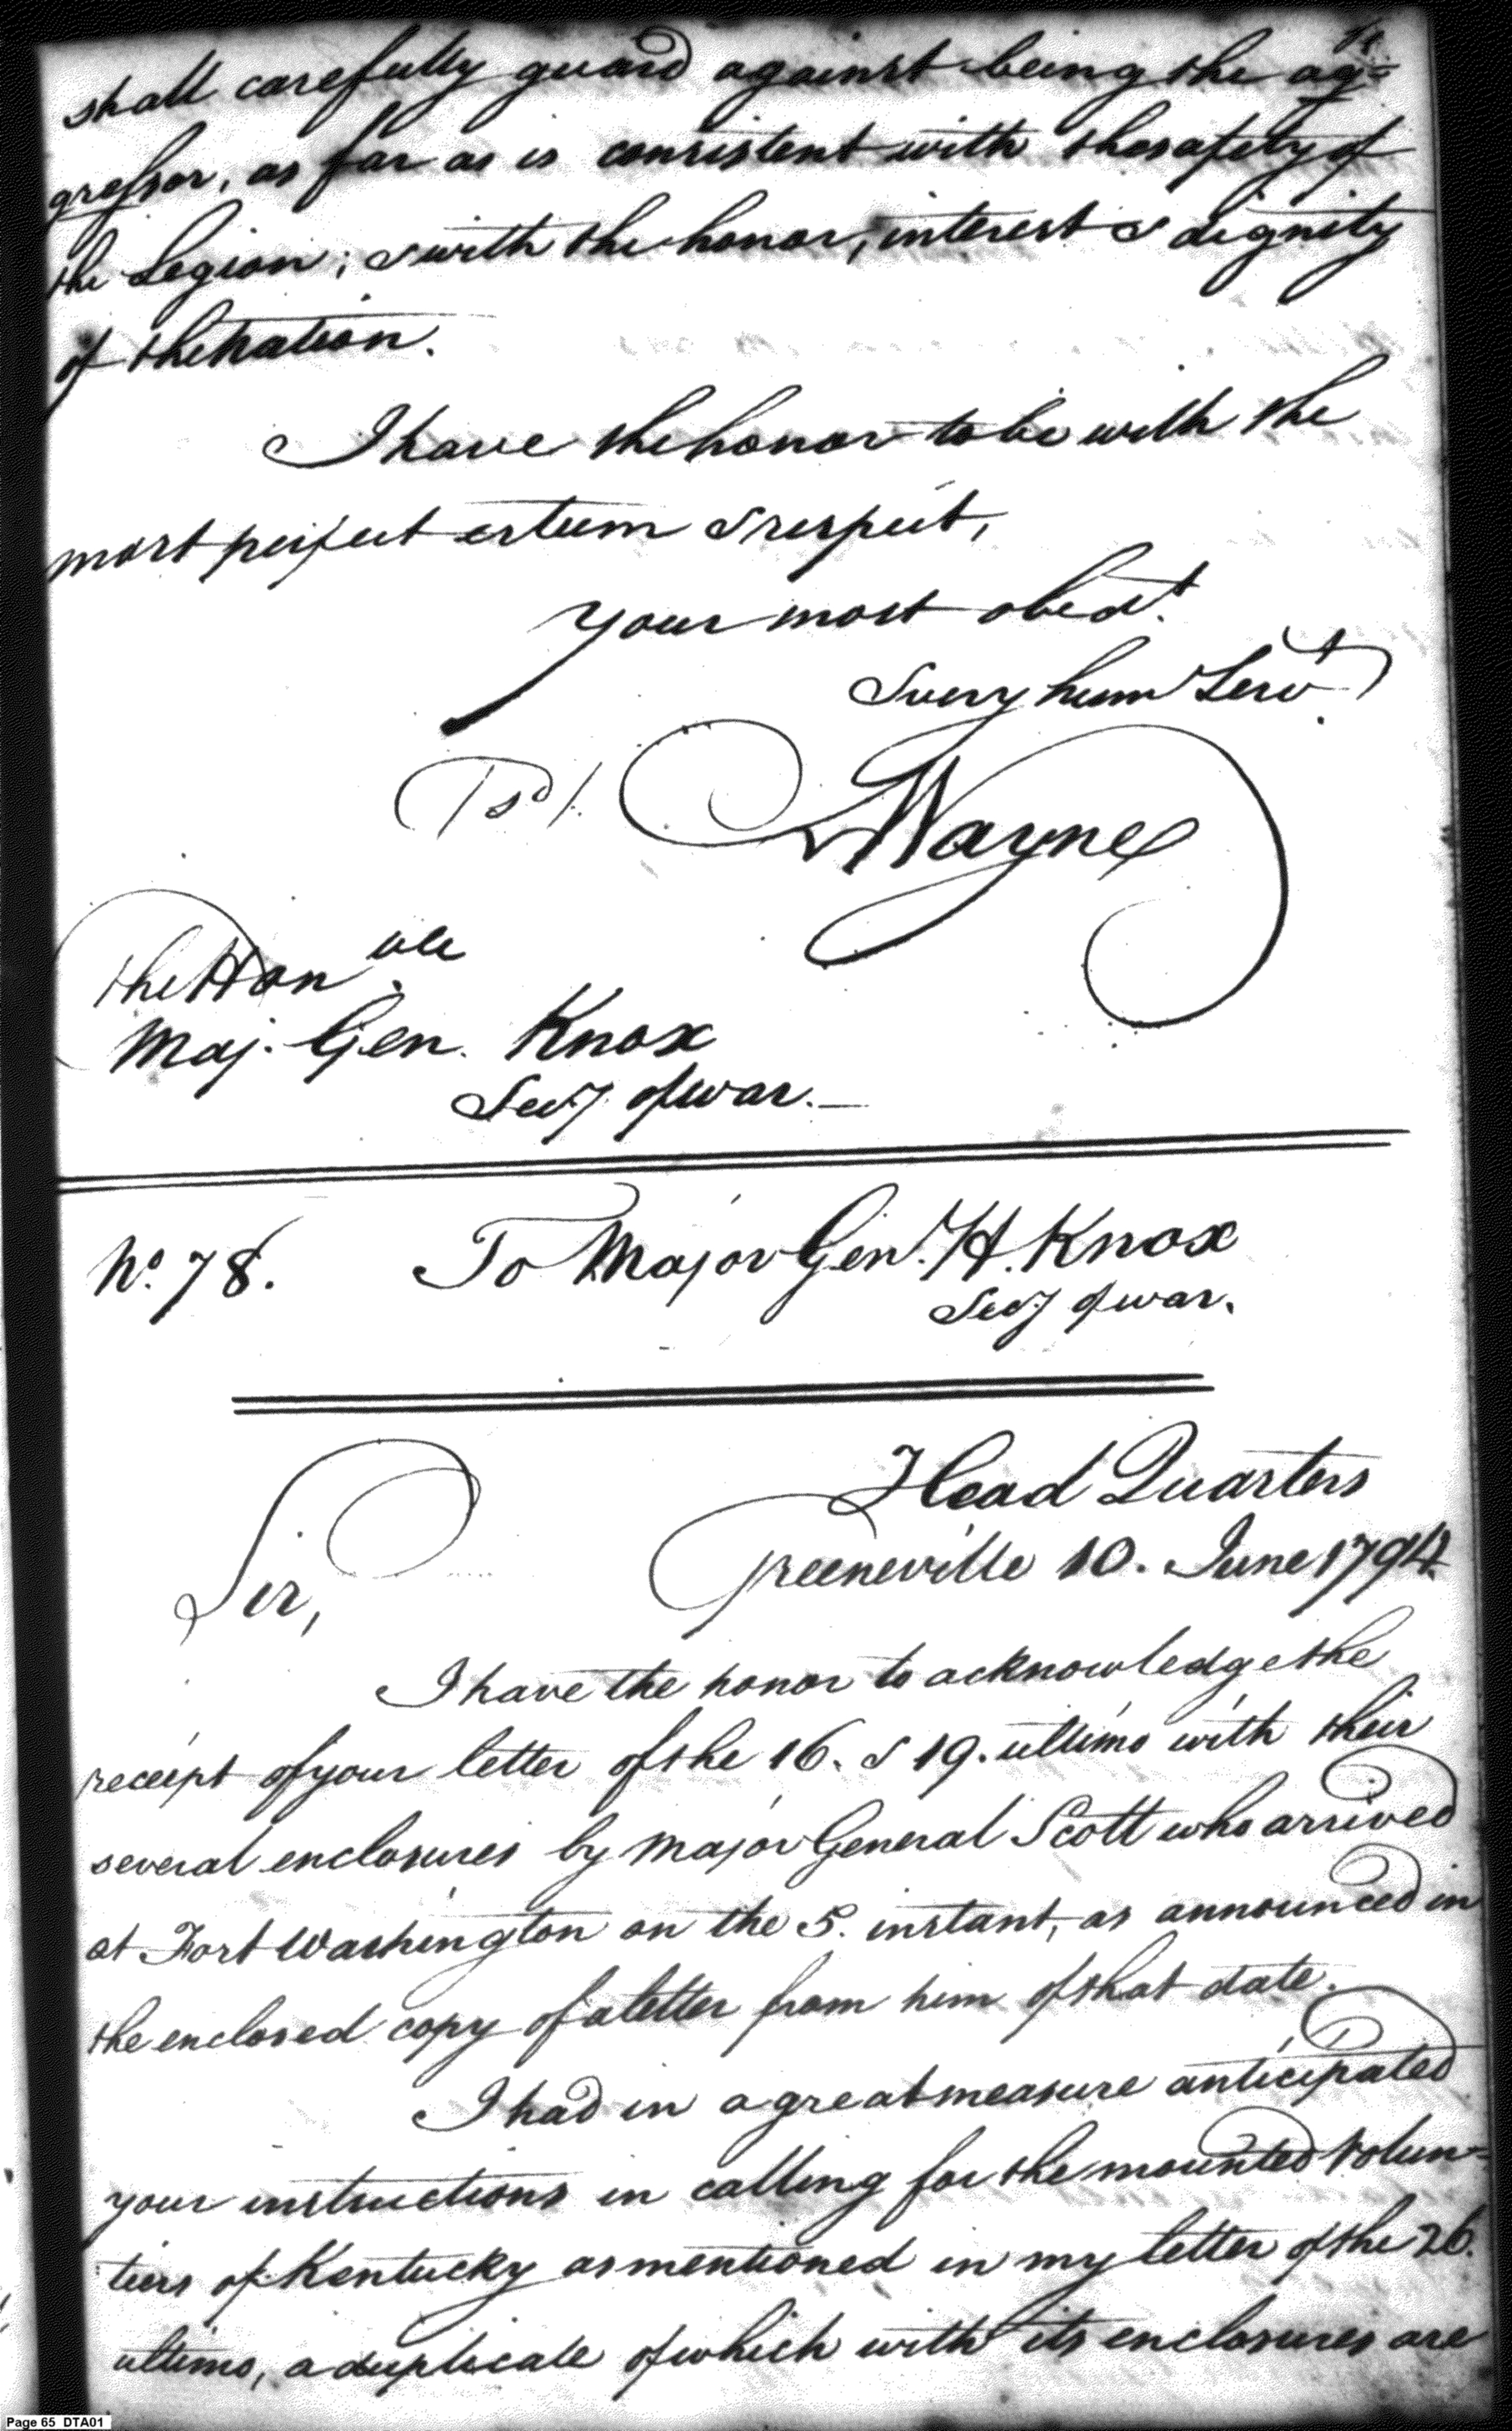 shall carefully guard against being the ag=
gressor, as far as is consistent with the safety of
the Legion; & with the honor, interest & dignity
of the Nation.
I have the honor to be with the
most perfect esteem & respect,
your most obedt.
& very hum Servt.
Wayne
The Honble
Maj. Gen. Knox
Secy of war.—
No. 78. To Major Gen. H. Knox
Secy of war.
Head Quarters
Sir, Greeneville 10. June 1794.
I have the honor to acknowledge the
receipt of your letter of the 16. & 19. ultimo with their
several enclosures by Major General Scott who arrived
at Fort Washington on the 5. instant, as announced in
the enclosed copy of a letter from him of that date.
I had in a great measure anticipated
your instructions in calling for the mounted Volun=
tiers of Kentucky as mentioned in my letter of the 26.
ultimo, a duplicate of which with its enclosures are
Page 65 DTA01